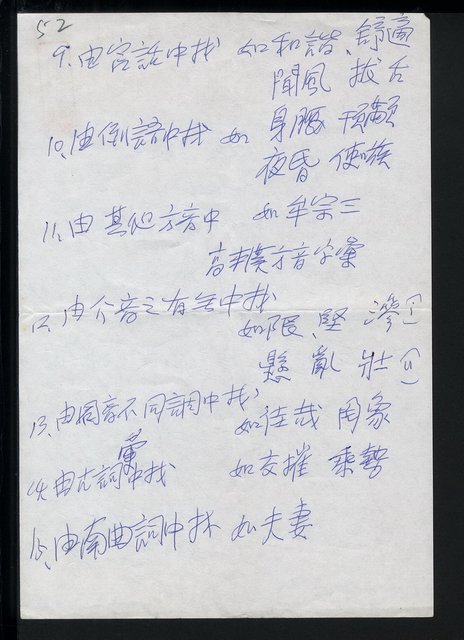 52
9、由官話中找 如和諧、舒適
聞風 拔舌
10、由倒語中找 如 身腰 頂顛
夜昏 使喉
11、由其他方言中 如牟宗三
高丰漢方音字彙
12、由介音之有無中找
如限、堅 滲(一)
懸 亂 壯(ㄐ)
13、由同音不同調中找
如往哉 用象
14、由古詞中找
如交摧 乘勢
15、由南曲詞中找 如夫妻